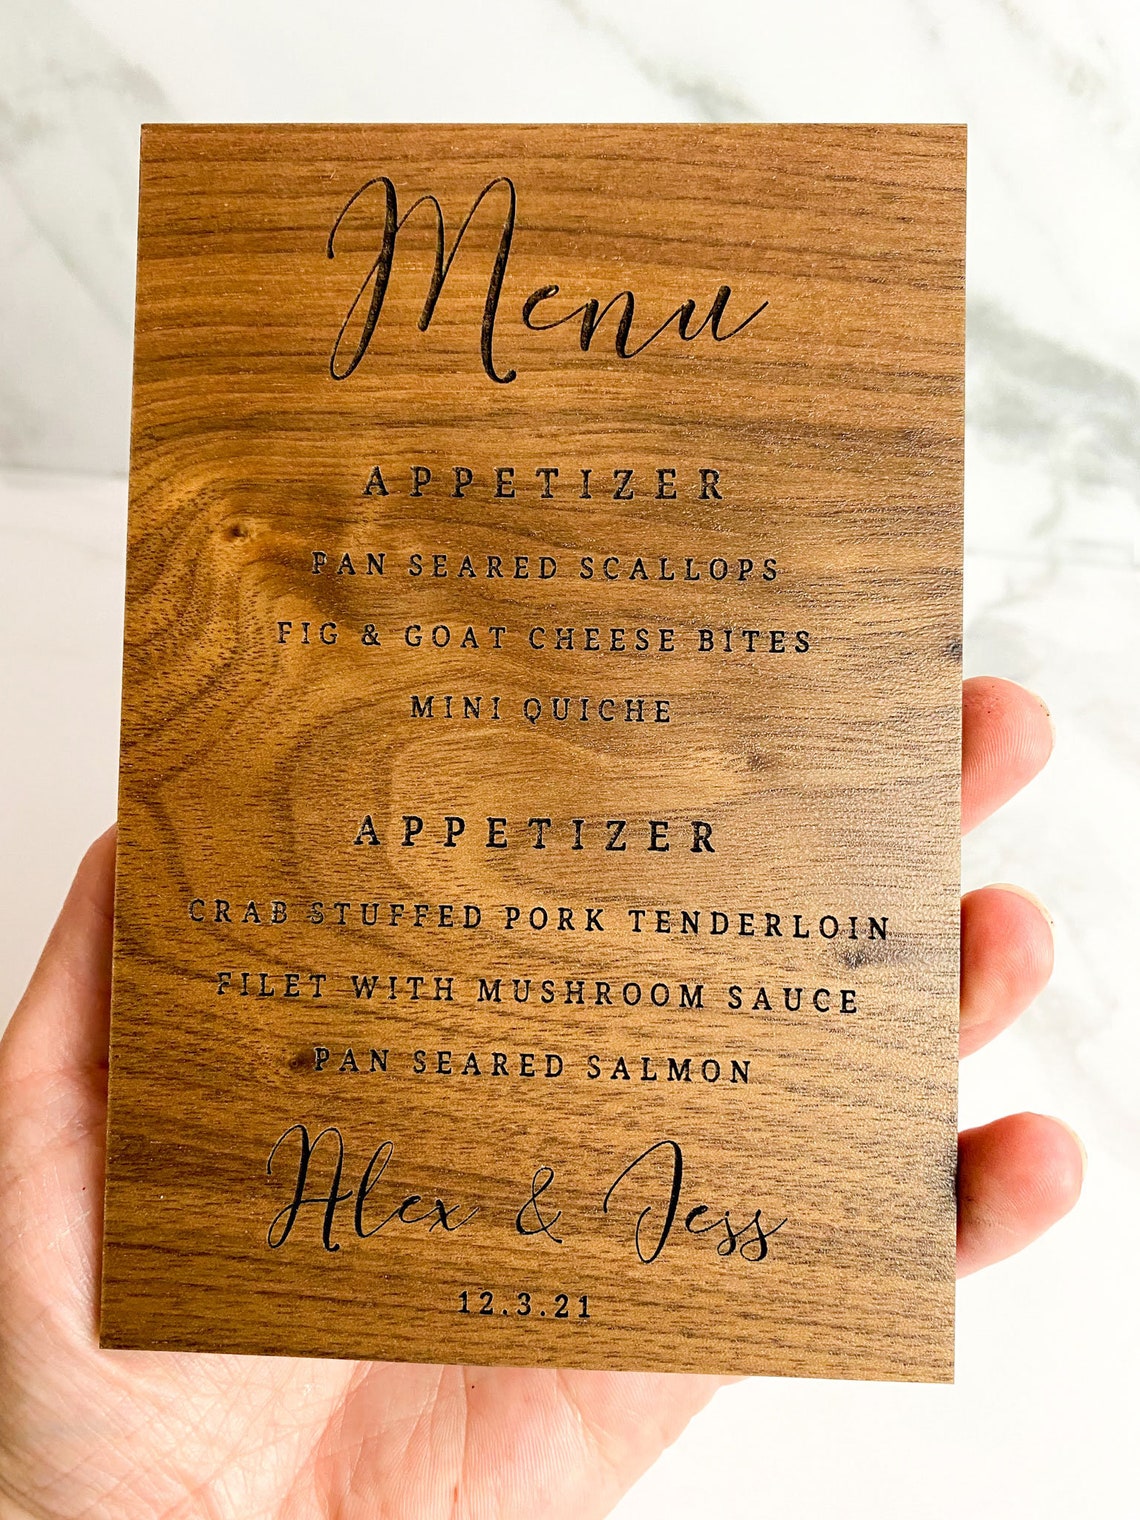 Menu
APPETIZER
PAN SEARED SCALLOPS
FIG & GOAT CHEESE BITES
MINI QUICHE
APPETIZER
CRAB STUFFED PORK TENDERLOIN
FILET WITH MUSHROOM SAUCE
PAN SEARED SALMON
Alex & Jess
12.3.21